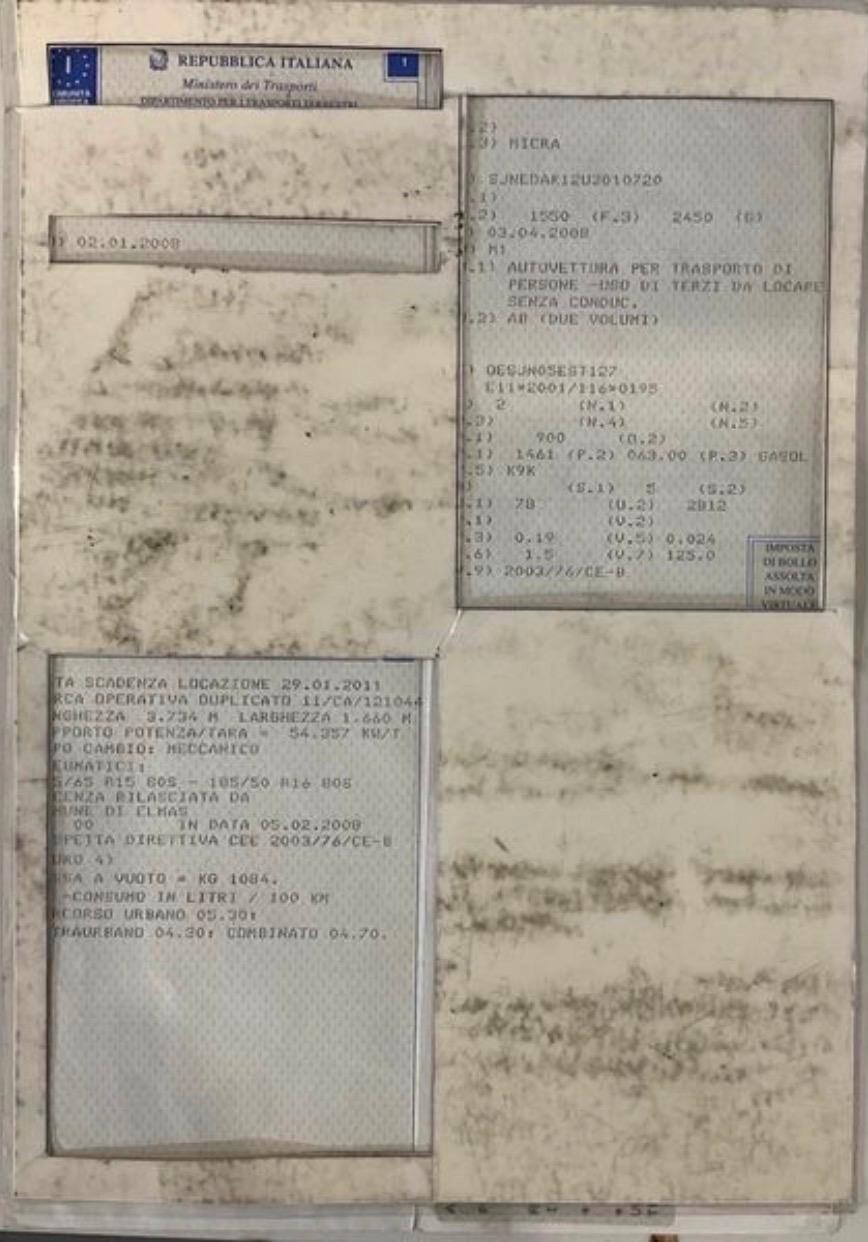 I
COMUNITÀ
REPUBBLICA ITALIANA
Ministero dei Trasporti
DIPARTIMENTO PER I TRASPORTI TERRESTRI
1
) 02.01.2008
.2)
.3) MICRA
) SJNEDAK12U2010720
.1)
.2) 1550 (F.3) 2450 (G)
) 03.04.2008
) M1
.1) AUTOVETTURA PER TRASPORTO DI
PERSONE -USO DI TERZI DA LOCARE
SENZA CONDUC.
.2) AB (DUE VOLUMI)
) OESJN05EST127
E11*2001/116*0195
) 2 (N.1) (N.2)
.3) (N.4) (N.5)
.1) 900 (O.2)
.1) 1461 (P.2) 063.00 (P.3) GASOL
.5) K9K
) (S.1) 5 (S.2)
.1) 78 (U.2) 2812
.1) (V.2)
.3) 0.19 (V.5) 0.024
.6) 1.5 (V.7) 125.0
.9) 2003/76/CE-B
IMPOSTA
DI BOLLO
ASSOLTA
IN MODO
VIRTUALE
TA SCADENZA LOCAZIONE 29.01.2011
RCA OPERATIVA DUPLICATO 11/CA/121044
NGHEZZA 3.734 M LARGHEZZA 1.660 M
PPORTO POTENZA/TARA = 54.357 KW/T
PO CAMBIO: MECCANICO
EUMATICI:
5/65 R15 80S - 185/50 R16 80S
CENZA RILASCIATA DA
MUNE DI ELMAS
00 IN DATA 05.02.2008
SPETTA DIRETTIVA CEE 2003/76/CE-B
URO 4)
SSA A VUOTO = KG 1084.
-CONSUMO IN LITRI / 100 KM
RCORSO URBANO 05.30;
TRAURBANO 04.30; COMBINATO 04.70.